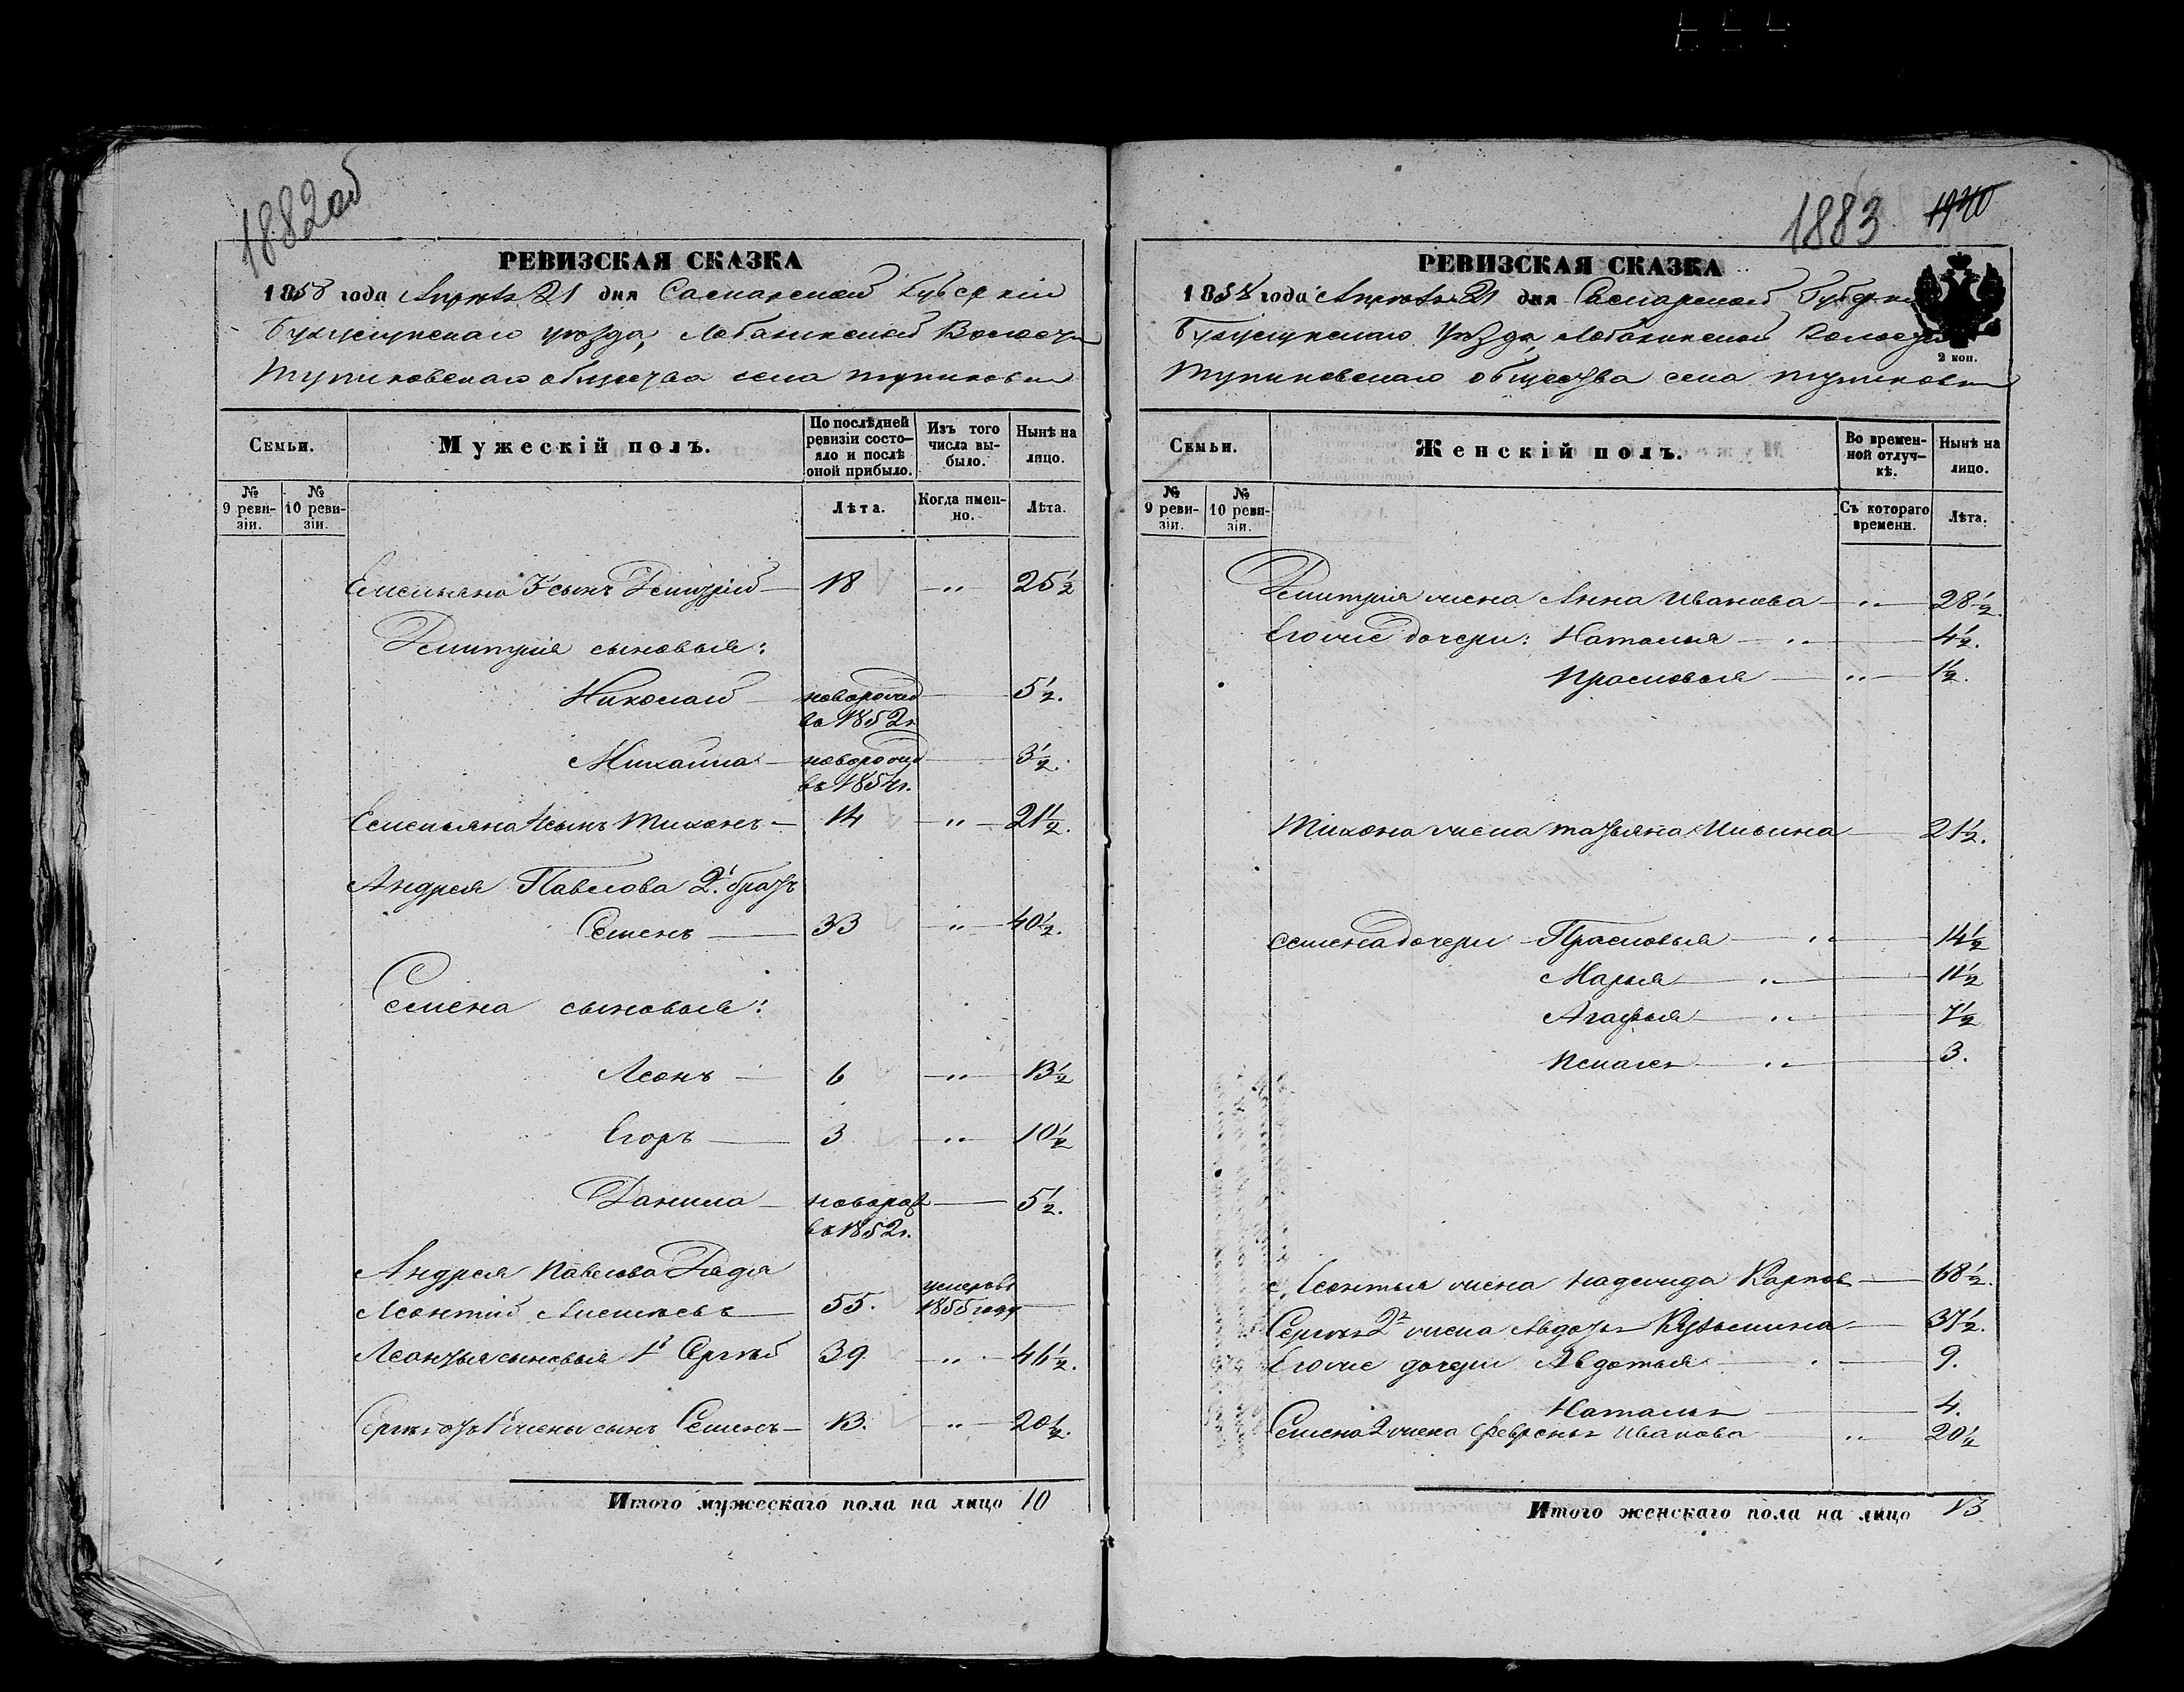 1882об
РЕВИЗСКАЯ СКАЗКА
1858 года Апреля 21 дня Самарской Губерніи
Бузулукскаго уѣзда, Лобазинской Волости
Тупиковскаго общества села Тупиковки
Семьи.
Мужескій полъ.
По послѣдней ревизіи состояло и послѣ оной прибыло.
Изъ того числа выбыло.
Нынѣ на лицо.
№ 9 ревизіи.
№ 10 ревизіи.
Лѣта.
Когда именно.
Лѣта.
Емельяна 3 сынъ Дмитрій — 18 — " — 25½
Дмитрія сыновья:
Николай — новорожд — 5½.
въ 1852г.
Михаила — новорожд — 3½.
въ 1854г.
Емельяна 4 сынъ Тихонъ — 14 — " — 21½.
Андрея Павлова 2й братъ
Семенъ — 33 — " — 40½.
Семена сыновья:
Леонъ — 6 — " — 13½
Егоръ — 3 — " — 10½
Данила — новорожд — 5½.
въ 1852г.
Андрея Павлова Дядя
Леонтій Алексѣевъ — 55. умеръ въ 1855 году —
Леонтья сыновья 1й Сергѣй 39 — " — 46½.
Сергѣя отъ 1й жены сынъ Семенъ — 13. — " — 20½.
Итого мужескаго пола на лицо 10
1883 1940
РЕВИЗСКАЯ СКАЗКА
1858 года Апреля 21 дня Самарской Губерніи
Бузулукскаго Уѣзда, Лобазинской Волости
2 коп.
Тупиковскаго общества села Тупиковки
Семьи.
Женскій полъ.
Во временной отлучкѣ.
Нынѣ на лицо.
№ 9 ревизіи.
№ 10 ревизіи.
Съ котораго времени.
Лѣта.
Дмитрія жена Анна Иванова — " — 28½.
Его же дочери: Наталья — " — 4½.
Прасковья — " — 1½.
Тихона жена татьяна Ильина — 21½.
Семена дочери — Прасковья — " — 14½
Марья — " — 11½
Агафья — " — 7½
— " — 3.
Леонтья жена надежда Карпова — 68½.
Сергѣя 2я жена Авдотья Кузьмина — 37½.
Его же дочери Авдотья — 9.
Наталья — 4.
Семена 2 жена Февронья Иванова " — 20½
Итого женскаго пола на лицо 13